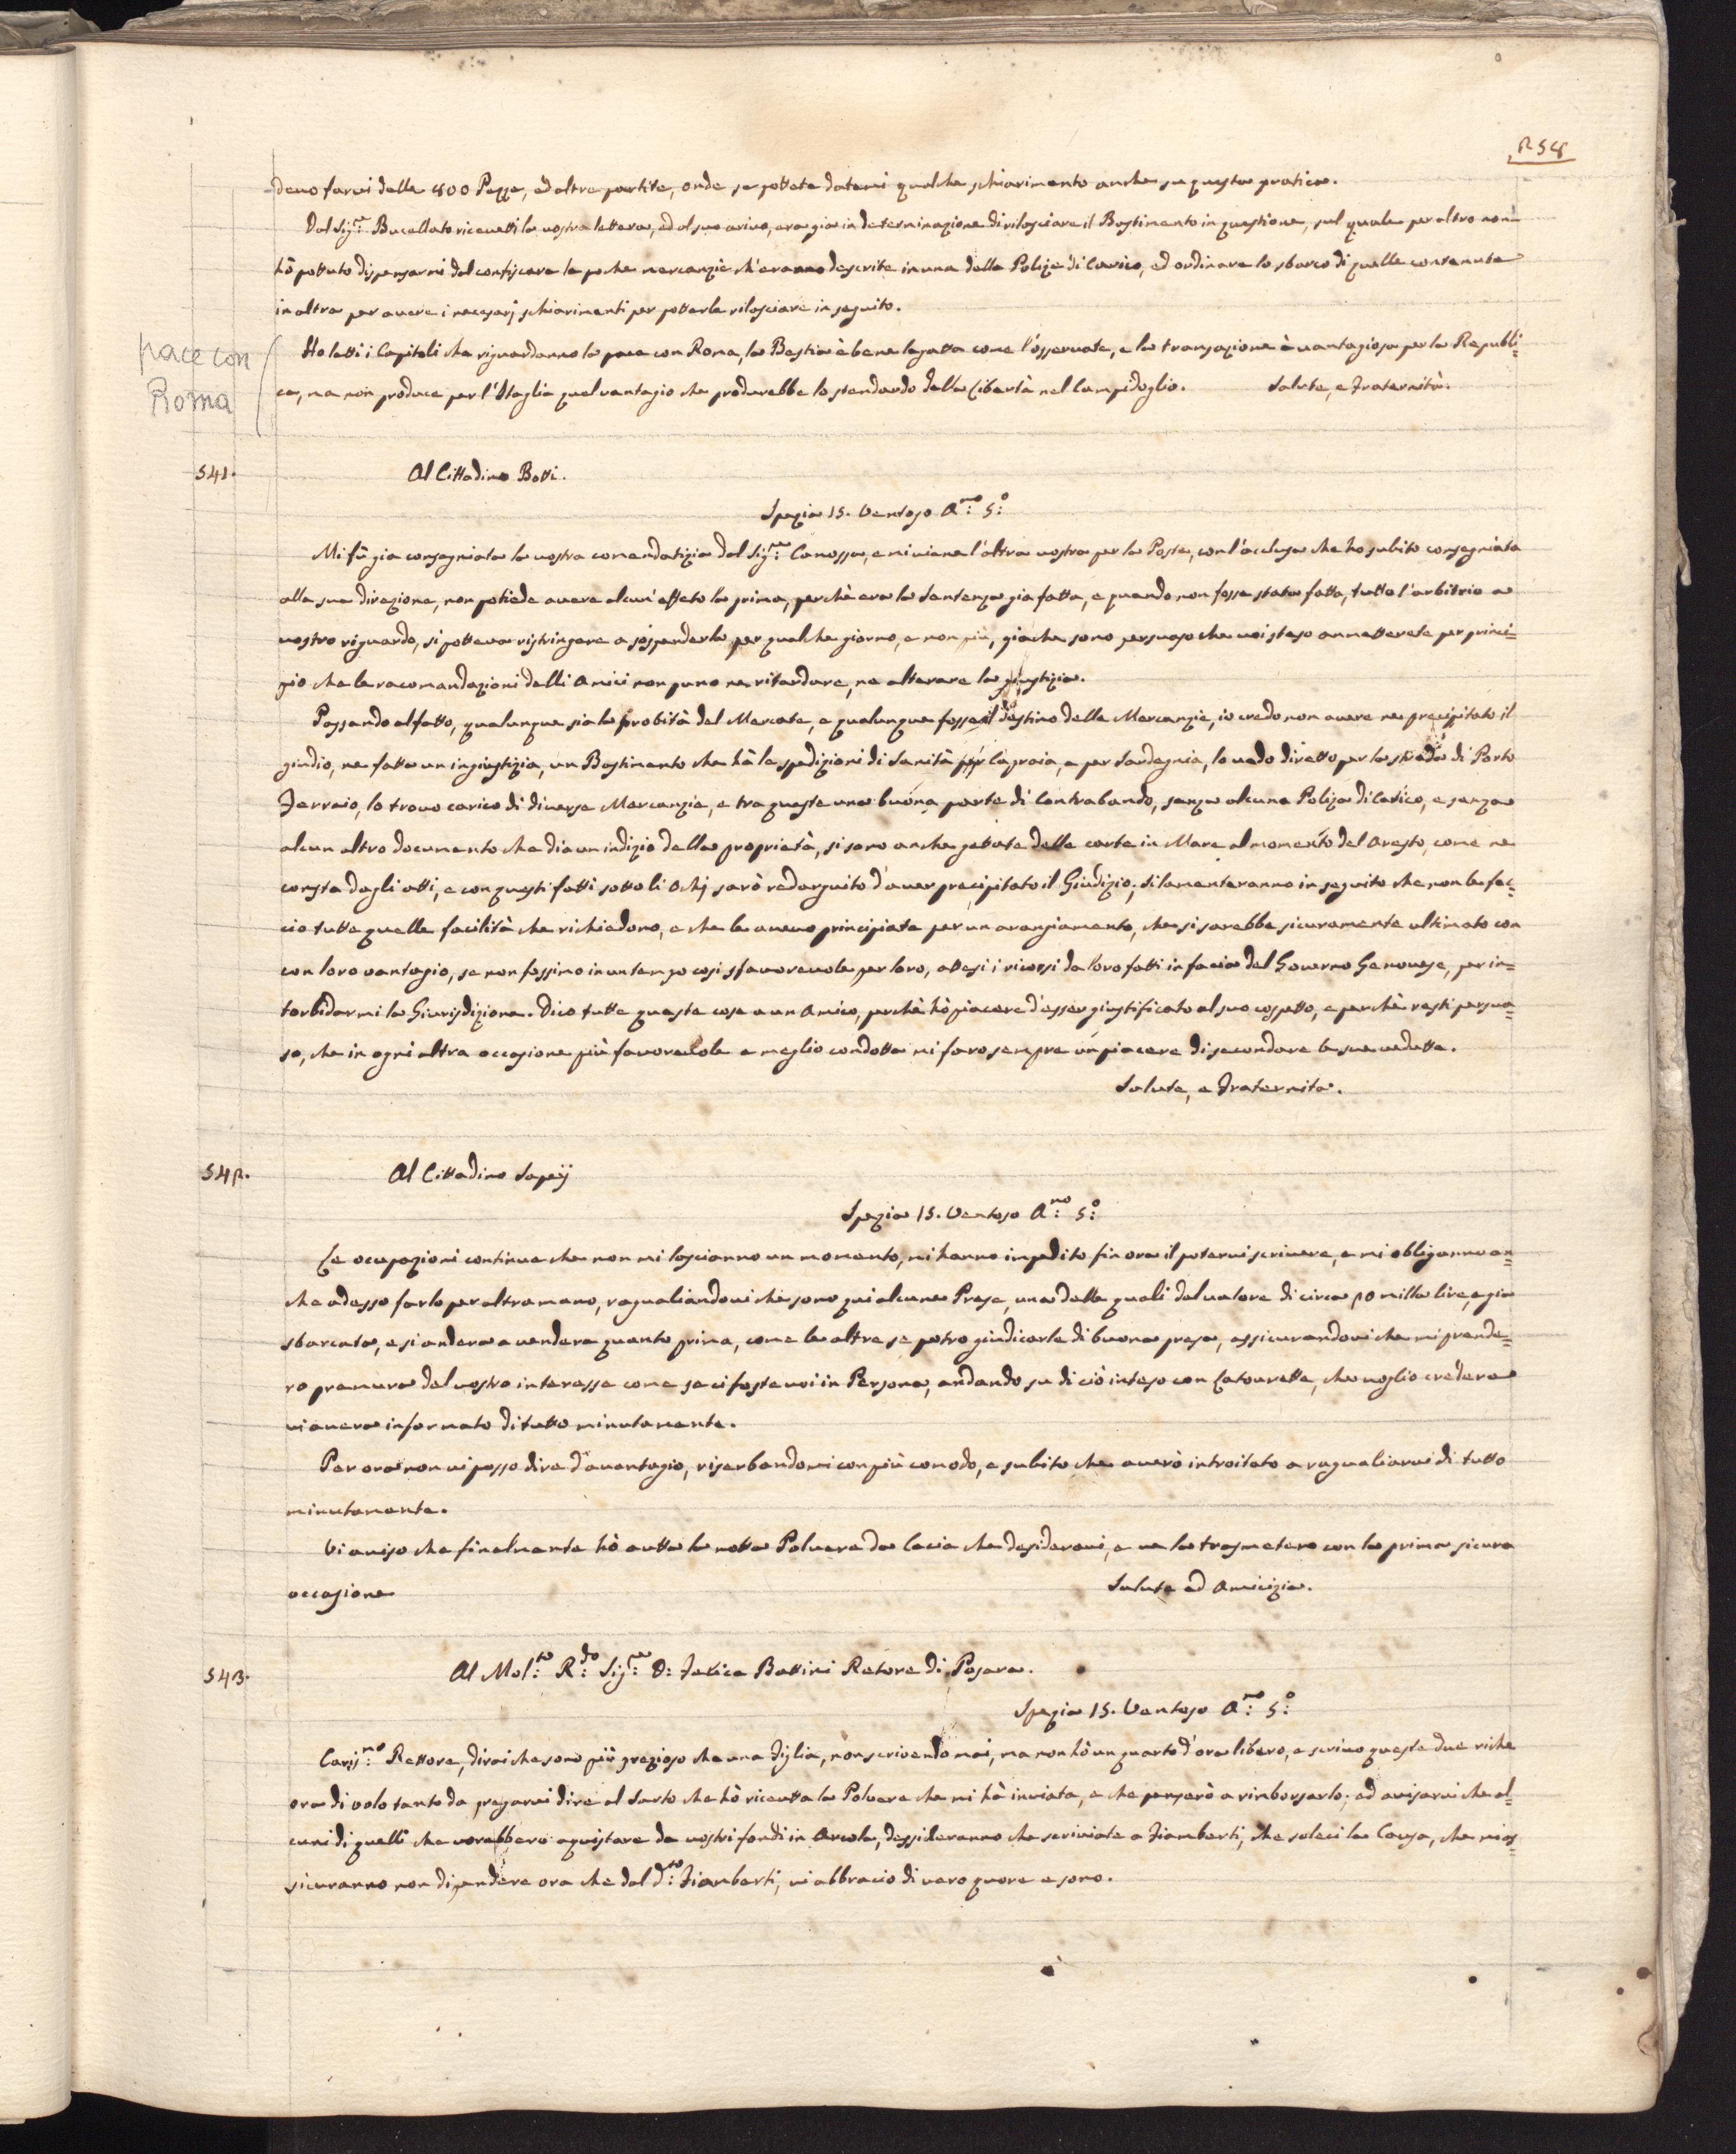 258
devo farvi delle 800 Pezze, ed altre partite, onde se pottete datemi qualche schiarimento anche su questa pratica.
Dal Sig:re Bucellato ricevetti la vostra lettera, ed al suo arivo, era gia in determinazione di rilasciare il Bastimento in questione, sul quale per altro non
hò pottuto dispensarmi dal confiscare le poche mercanzie ch'eranno descrite in una delle Polize di Carico, ed ordinare lo sbarco di quelle contenute
in altra per avere i necesarj schiarimenti per potterle rilasciare in seguito.
pace con
Roma
Ho letti i Capitoli che riguardanno la pace con Roma, la Bestia è bene legatta come l'osservate, e la transazione è vantagiosa per la Republi=
ca, ma non produce per l'Itaglia quel vantagio che produrebbe lo stendardo della Libertà nel Campidoglio. Salute, e Fraternità.
541. Al Cittadino Botti.
Spezia 15. Ventoso A:no 5:o
Mi fù gia consegniata la vostra comendatizia dal Sig:re Canossa, e mi viene l'altra vostra per la Posta, con l'acclusa che ho subito consegniata
alla sua direzione, non potiede avere alcun'effeto la prima, perchè era la Sentenza gia fatta, e quando non fosse stata fatta, tutto l'arbitrio a
vostro riguardo, si potteva ristringere a sospenderla per qualche giorno, e non più, giache sono persuaso che voi steso ammetterete per princi=
pio che le racomandazioni delli Amici non puno ne ritardare, ne alterare la giustizia.
Passando al fatto, qualunque sia la probità del Mercate, e qualunque fosse il destino delle Mercanzie, io credo non avere ne precipitato il
giudio, ne fatta un ingiustizia, un Bastimento che hà le spedizioni di Sanità per Capraia, e per Sardegnia, lo vedo diretto per la strada di Porto
Ferraio, lo trovo carico di diverse Mercanzie, e tra queste una buona parte di Contrabando, senza alcuna Poliza di Carico, e senza
alcun altro documento che dia un indizio della proprietà, si sono anche gettate delle carte in Mare al momento del Aresto, come ne
consta dagli atti, e con questi fatti sotto li Ochj sarò redarguito d'aver precipitato il Giudizio; si lamenteranno in seguito che non le fac=
cio tutte quelle facilità che richiedono, e che le avevo principiate per un arangiamento, che si sarebbe sicuramente ultimato con
con loro vantagio, se non fossimo in un tempo cosi sfavorevole per loro, attesi i ricorsi da loro fatti in facia del Governo Genovese, per in=
torbidarmi la Giurisdizione. Dico tutte queste cose a un Amico, perchè hò piacere d'esser giustificato al suo cospetto, e perchè resti persua=
so, che in ogni altra occasione più favorevole e meglio condotta mi faro sempre un piacere di secondare le sue vedutte.
Salute, e Fraternita.
542. Al Cittadino Sapeij
Spezia 15. Ventoso A:no 5:o
Le ocupazioni continue che non mi lascianno un momento, mi hanno impedito fin ora il potervi scrivere, e mi obliganno an=
che adesso farlo per altra mano, ragualiandovi che sono qui alcune Prese, una delle quali del valore di circa 20 milla lire, e gia
sbarcata, e si andera a vendere quanto prima, come le altre se potro giudicarle di buona presa, assicurandovi che mi prende=
ro premura del vostro interesse come se ci foste voi in Persona, andando su di ciò inteso con Latourette, che voglio credere
vi avera informato di tutto minutamente.
Per ora non vi posso dire d'avantagio, riserbandomi con più comodo, e subito che averò introitato a ragualiarvi di tutto
minutamente.
Vi aviso che finalmente hò avuta la notta Polvere da Cacia che desideravi, e ve la trasmetero con la prima sicura
occasione Salute ed Amicizia.
543. Al Mol:to R:do Sig:re D: Felice Battini Retore di Posara.
Spezia 15. Ventoso A:no 5:o
Caris:mo Rettore, dirai che sono più prezioso che una Figlia, non scrivendo mai, ma non hò un quarto d'ora libero, e scrivo queste due riche
ora di volo tanto da pregarvi dire al Sarto che hò ricevuta la Polvere che mi hà inviata, e che penserò a rimborsarlo; ed avisarvi che al=
cuni di quelli che vorebbero aquistare da vostri fondi in Arcola, dessideranno che scriviate a Fiamberti, che soleci la Causa, che mi as=
sicuranno non dipendere ora che dal d:to Fiamberti, vi abbracio di vero quore e sono.